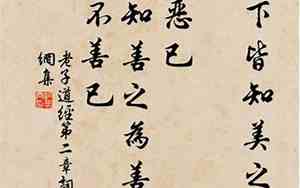 下皆知美之
恶已
知善之為善
不善已
老子道經第二章詞
綱集